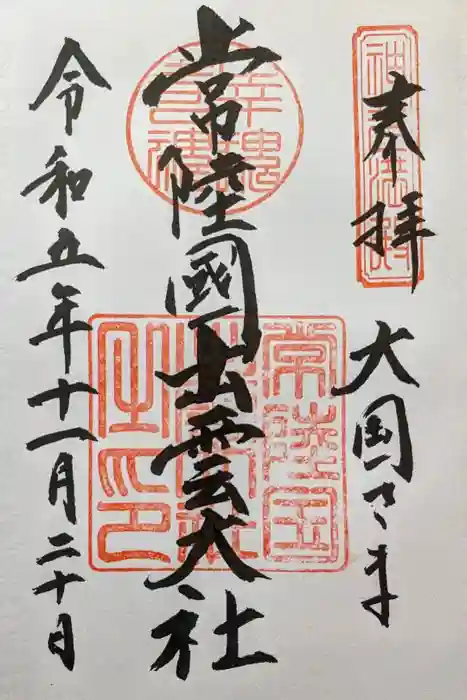 奉拝
大国さま
常陸國出雲大社
令和五年十一月二十日
常陸国